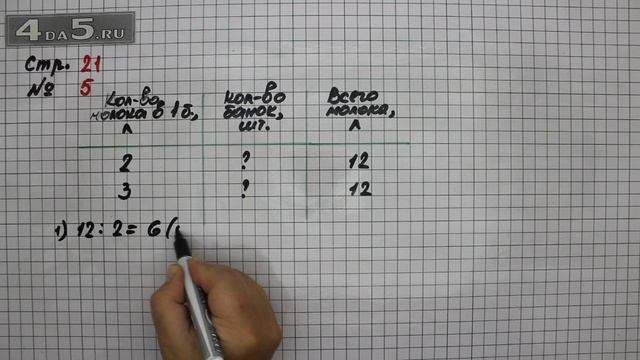 4DA5.RU
Стр. 21
№ 5
Кол-во молока в 1 б., л
Кол-во банок, шт.
Всего молока, л
2 ? 12
3 ? 12
1) 12 : 2 = 6 (